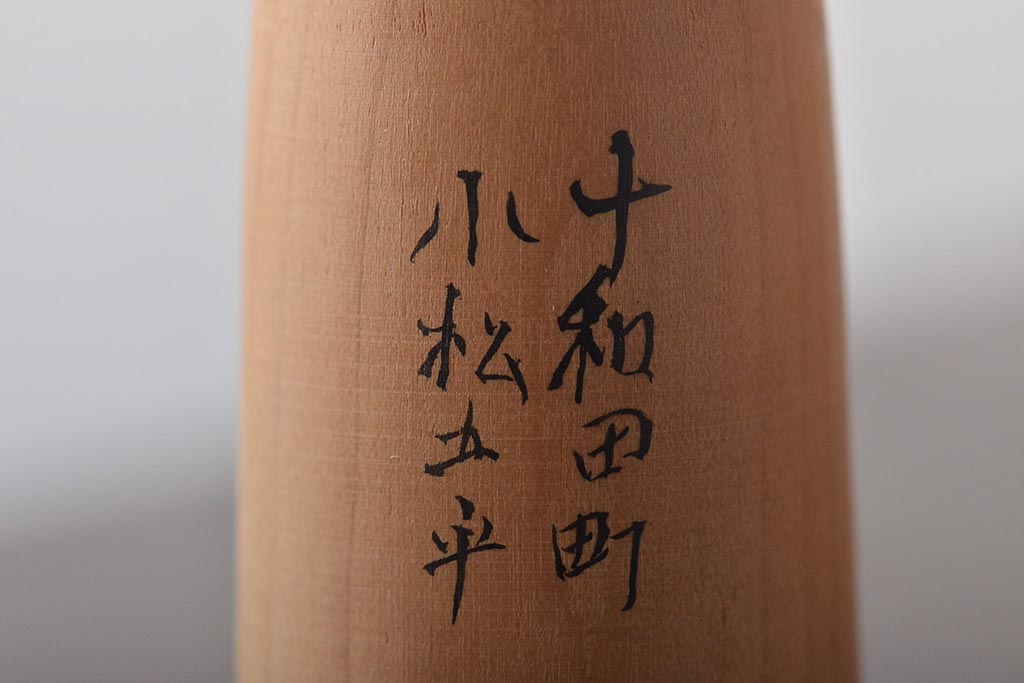 十和田町
小松五平